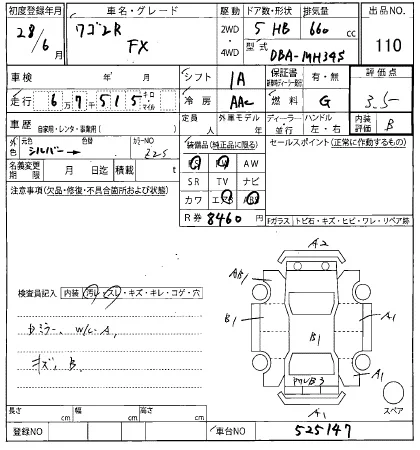 初度登録年月 車名・グレード 駆動 ドア数・形状 排気量 出品NO.
28/6月 ワゴンR FX 2WD 4WD 5 HB 660 110
型式 DBA-MH34S
車検 年 月 シフト IA 保証書 有・無 評価点
走行 6万7千515キロ マイル 冷房 AAC 燃料 G 3.5
車歴 自家用・レンタ・事業用( ) 定員 人 外車モデル 年 ディーラー 並行 ハンドル 左・右 内装評価 B
外色 元色 シルバー 色替 → カラーNO Z2S
装備品(純正品に限る) セールスポイント(正常に作動するもの)
名義変更期限 月 日迄 積載 t
PS PW AW
SR TV ナビ
カワ エアB ABS
注意事項(欠品・修復・不具合箇所および状態)
R券 8460
Fガラス トビ石・キズ・ヒビ・ワレ・リペア跡
A2
検査員記入 内装 汚レ・スレ・キズ・キレ・コゲ・穴
B1 B1 A1
W/C A1
キズ、B
A1
A1
長さ cm 幅 cm 高さ cm
スペア
登録NO 車台NO 525147